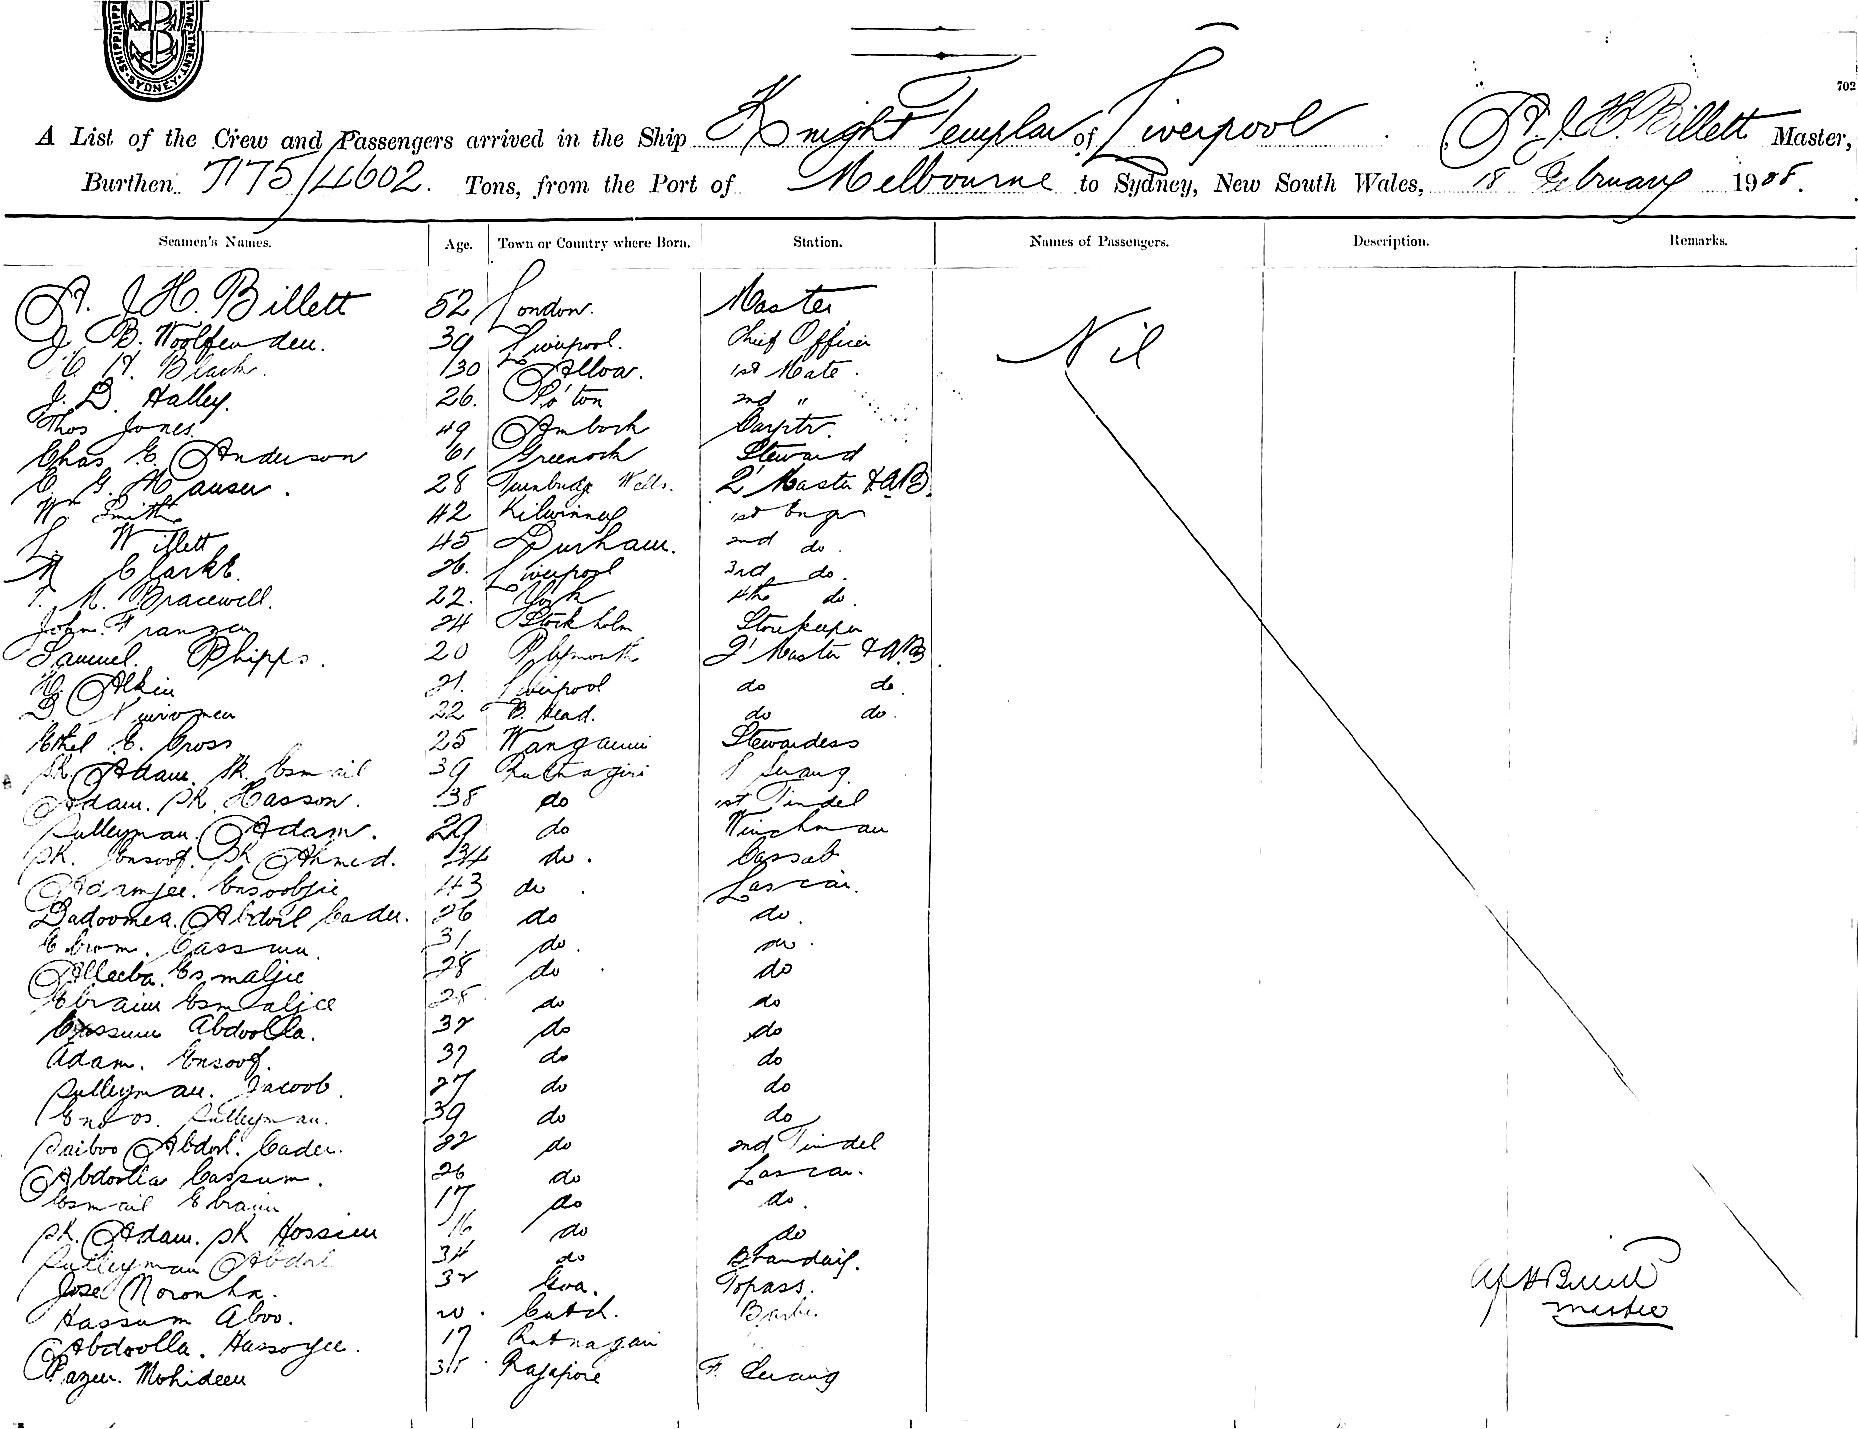 SHIPPING DEPARTMENT SYDNEY
702
A List of the Crew and Passengers arrived in the Ship Knight Templar of Liverpool A. J. H. Billett Master,
Burthen 7175/4602. Tons, from the Port of Melbourne to Sydney, New South Wales, 18 February 1908.
Seamen's Names. Age. Town or Country where Born. Station. Names of Passengers. Description. Remarks.
A. J. H. Billett 52 London. Master
J. B. Woolfenden. 39 Liverpool. Chief Officer
Nil
H. Black. 30 Alloa. 1st Mate.
J. D. Halley. 26. 2nd "
Thos Jones. 49 Amloch Carptr.
Chas. E. Anderson 61 Greenock Steward
C. G. Hauser. 28 Tunbridge Wells. 2' Master & A.B.
Wm Smith 42 Kilwinney 1st Engr
L. Willett 45 Durham. 2nd do.
Clarke. 26. Liverpool 3rd do.
M. Bracewell. 22. York 4th do.
John Franzen 24 Stockholm Storekeeper
Samuel. Phipps. 20 Plymouth 2' Master & A.B.
Atkin 21. Liverpool do do.
D. 22 B. Head. do do.
Ethel E. Cross 25 Wanganui Stewardess
Sk Adam. Sk. Esmail 39 Rutnagiri Serang.
Adam. Sk. Hasson. 38 do 1st Tindel
Sulleyman. Adam. 29 do Winchman
Sk. Ensoof. Sk Ahmed. 34 do. Cassab
Adamjee. Ensoobjie 43 do. Lascar.
Dadoomea. Abdool Cader. 26 do do.
Ebrom. Cassum. 31 do. do.
Alleeba. Esmaljie 28 do. do
Ebraim Esmaljee 28 do do
Cassum Abdoolla. 32 do do
Adam. Ensoof. 37 do do
Sulleyman. Jacoob. 27 do do
Sulleyman. 39 do do
Saiboo Abdol. Cader. 22 do 2nd Tindel
Abdoolla Cassum. 26 do Lascar.
Esmail Ebraim 17 do do.
Sk. Adam. Sk Hossien 16 do do
Sulleyman Abdol 34 do Brandail.
Jose Noronha. 32 Goa. Topass.
A J H Billett
Master
Hassum Aboo. 20. Cutch.
Abdoolla. Hassojee. 17 Rutnagari
Mohideen Rajapore F. Serang